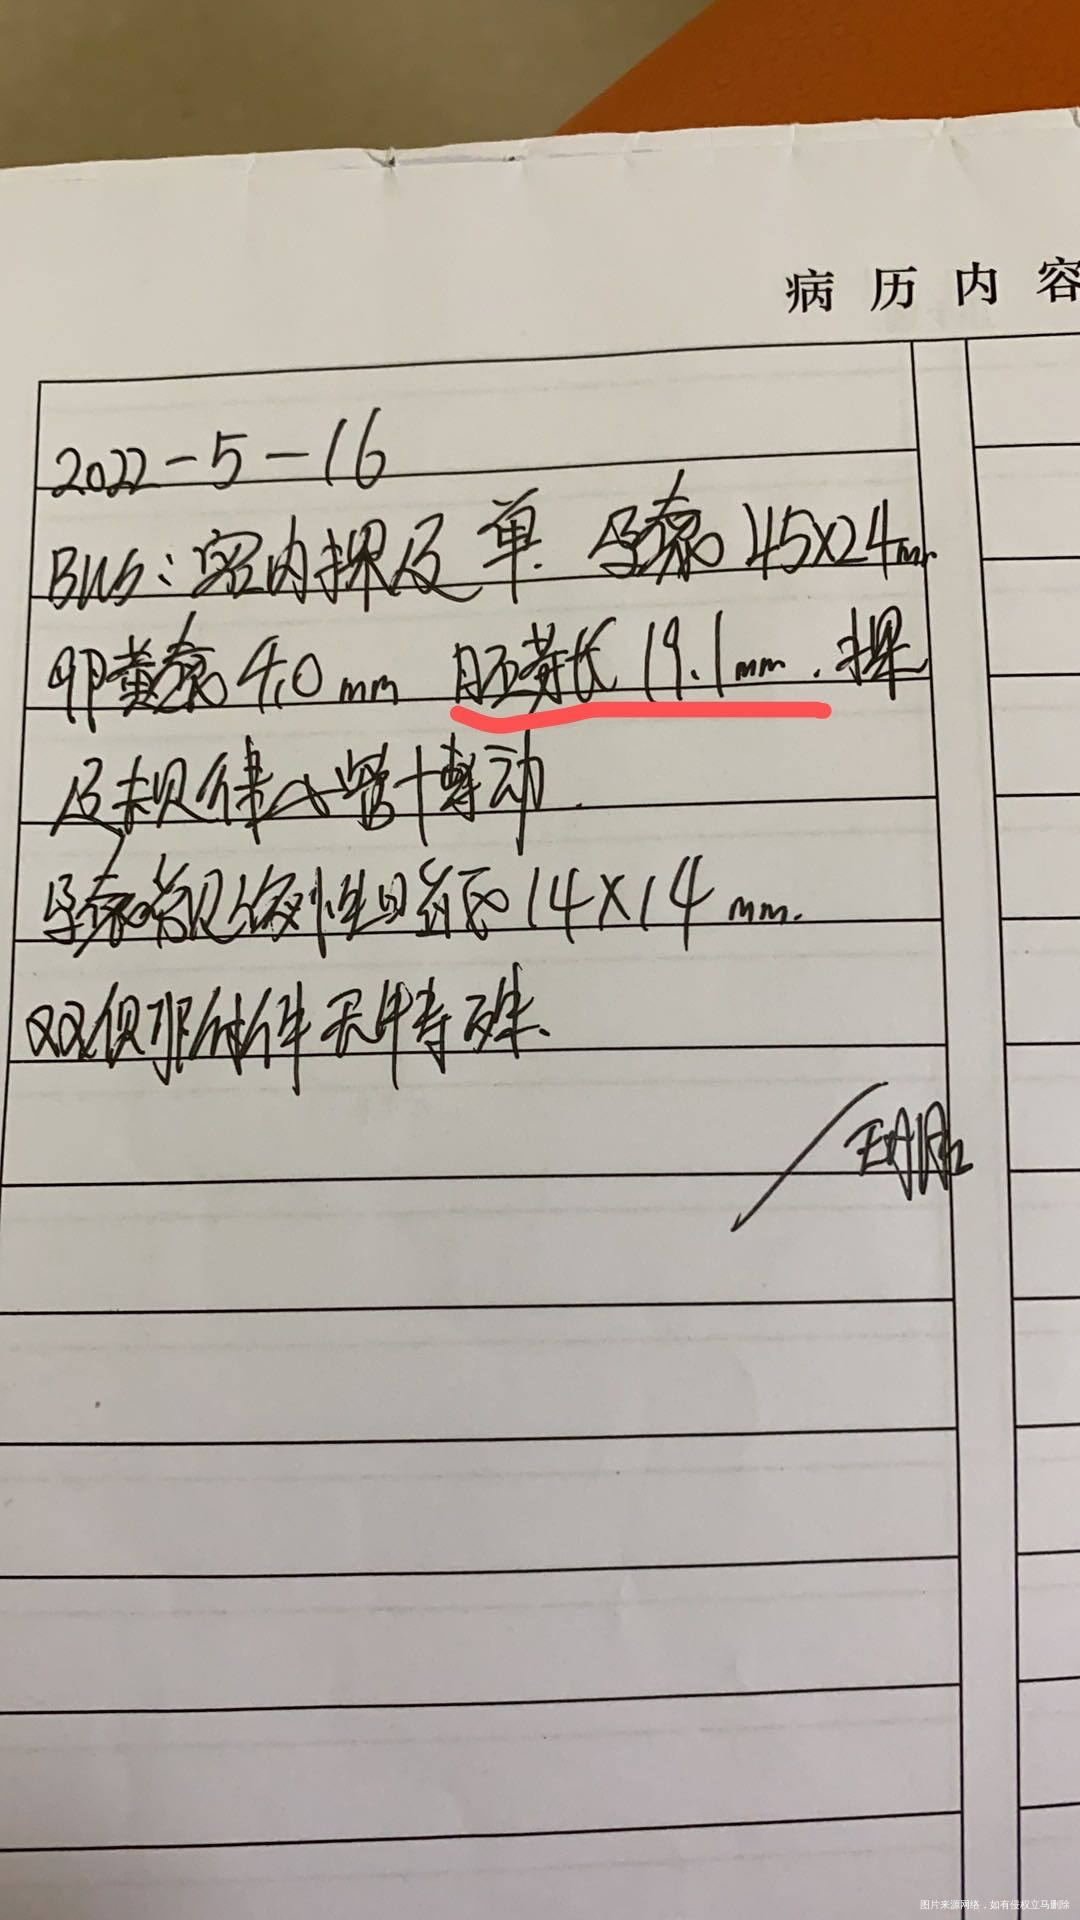 病历内容
2022-5-16
BUS:宫内探及单孕囊45X24mm
卵黄囊4.0mm 胚芽长19.1mm.探
及规律心管搏动.
孕囊旁见衰减性回声区14X14mm.
双侧附件无特殊.
图片来源网络,如有侵权立马删除